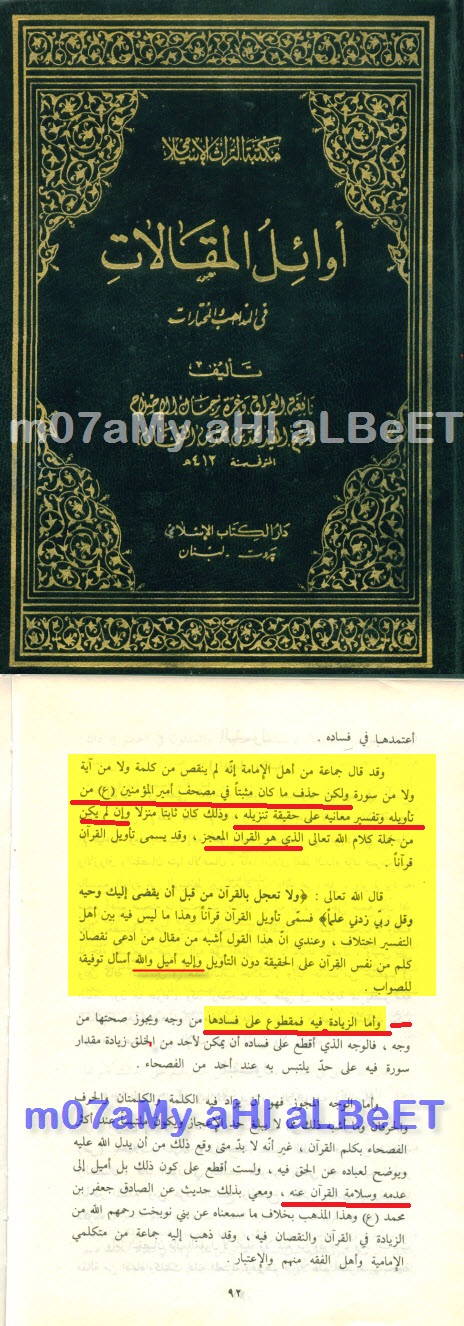 مكتبة التراث الإسلامي
أوائل المقالات
في المذاهب والمختارات
تأليف
نابغة العراق
m07aMy aHl aLBeET
المتوفى سنة ٤١٣ هـ
دار الكتاب الإسلامي
بيروت - لبنان
أعتمدها في فساده .
وقد قال جماعة من أهل الإمامة إنّه لم ينقص من كلمة ولا من آية
ولا من سورة ولكن حذف ما كان مثبتاً في مصحف أمير المؤمنين (ع) من
تأويله وتفسير معانيه على حقيقة تنزيله ، وذلك كان ثابتاً منزلاً وإن لم يكن
من جملة كلام الله تعالى الذي هو القرآن المعجز ، وقد يسمى تأويل القرآن
قرآناً .
قال الله تعالى : ﴿ولا تعجل بالقرآن من قبل أن يقضى إليك وحيه
وقل ربّي زدني علماً﴾ فسمّى تأويل القرآن قرآناً وهذا ما ليس فيه بين أهل
التفسير اختلاف ، وعندي انّ هذا القول أشبه من مقال من ادعى نقصان
كلم من نفس القرآن على الحقيقة دون التأويل وإليه أميل والله أسأل توفيقه
للصواب .
وأما الزيادة فيه فمقطوع على فسادها من وجه ويجوز صحتها من
وجه ، فالوجه الذي أقطع على فساده أن يمكن لأحد من الخلق زيادة مقدار
سورة فيه على حدّ يلتبس به عند أحد من الفصحاء .
وأما الوجه المجوز فهو أن يزاد فيه الكلمة والكلمتان والحرف
m07aMy aHl aLBeET
والحرفان وما أشبه ذلك مما لا يبلغ حد الإعجاز ويكون ملتبساً عند أكثر
الفصحاء بكلم القرآن ، غير أنّه لا بدّ متى وقع ذلك من أن يدل الله عليه
ويوضح لعباده عن الحق فيه ، ولست أقطع على كون ذلك بل أميل إلى
عدمه وسلامة القرآن عنه ، ومعي بذلك حديث عن الصادق جعفر بن
محمد (ع) وهذا المذهب بخلاف ما سمعناه عن بني نوبخت رحمهم الله من
الزيادة في القرآن والنقصان فيه ، وقد ذهب إليه جماعة من متكلمي
الإمامية وأهل الفقه منهم والإعتبار .
٩٢